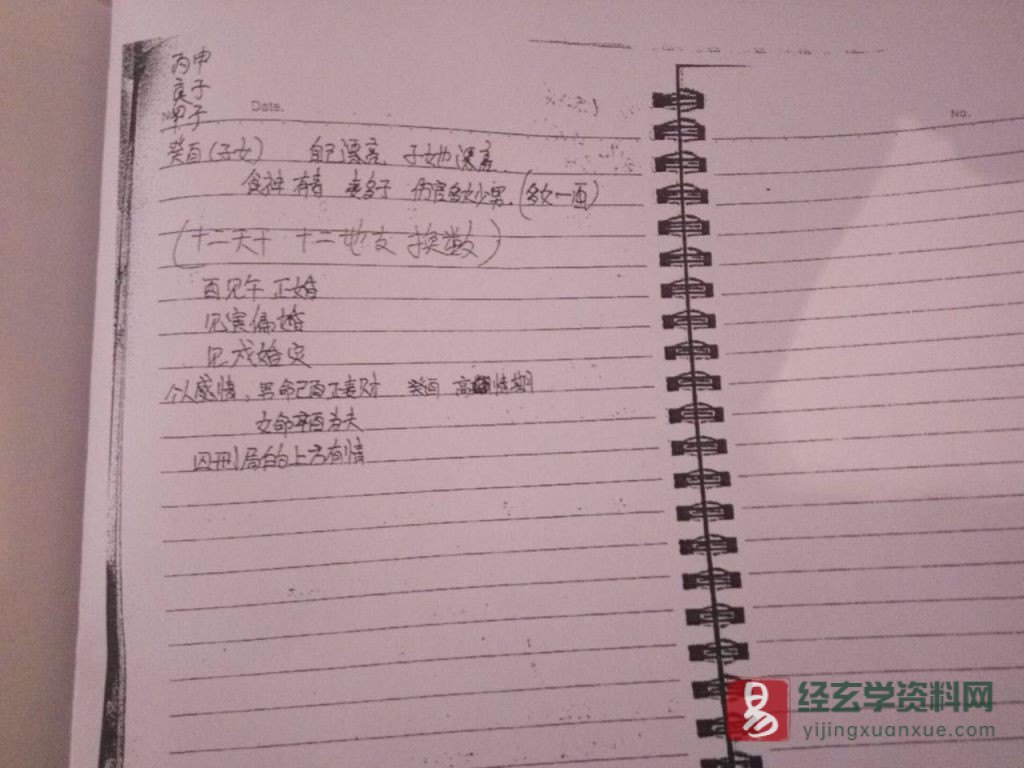 丙申
庚子
Date.
甲子
No.
癸酉(子女) 自己漂亮 子女也漂亮
食神 有者 妻多子 伤官多女少男.(多女一面)
(十二天干 十二地支 换数)
酉见午 正婚
见寅偏婚
见戌婚定
个人感情、男命己酉正妻财 癸酉 高 情期
女命辛酉为夫
囚刑局的上方有情
易 经玄学资料网
yijingxuanxue.com